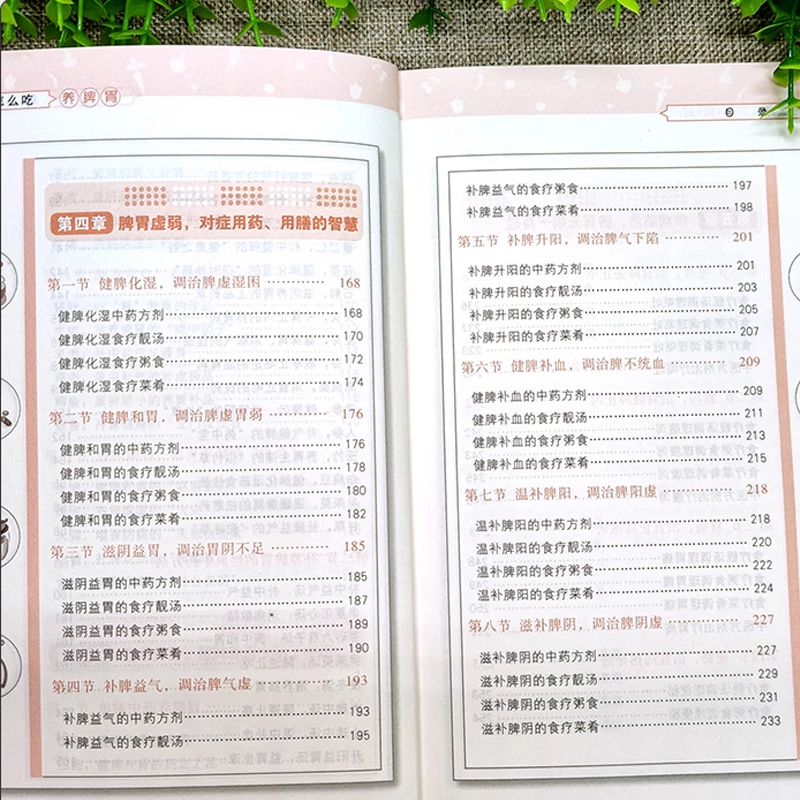 么吃 养脾胃
第四章 脾胃虚弱，对症用药、用膳的智慧
第一节 健脾化湿，调治脾虚湿困 ………… 168
健脾化湿中药方剂………………………… 168
健脾化湿食疗靓汤………………………… 170
健脾化湿食疗粥食………………………… 172
健脾化湿食疗菜肴………………………… 174
第二节 健脾和胃，调治脾虚胃弱 ………… 176
健脾和胃的中药方剂……………………… 176
健脾和胃的食疗靓汤……………………… 178
健脾和胃的食疗粥食……………………… 180
健脾和胃的食疗菜肴……………………… 182
第三节 滋阴益胃，调治胃阴不足 ………… 185
滋阴益胃的中药方剂……………………… 185
滋阴益胃的食疗靓汤……………………… 187
滋阴益胃的食疗粥食……………………… 189
滋阴益胃的食疗菜肴……………………… 190
第四节 补脾益气，调治脾气虚 …………… 193
补脾益气的中药方剂……………………… 193
补脾益气的食疗靓汤……………………… 195
目 录
补脾益气的食疗粥食……………………… 197
补脾益气的食疗菜肴……………………… 198
第五节 补脾升阳，调治脾气下陷 ………… 201
补脾升阳的中药方剂……………………… 201
补脾升阳的食疗靓汤……………………… 203
补脾升阳的食疗粥食……………………… 205
补脾升阳的食疗菜肴……………………… 207
第六节 健脾补血，调治脾不统血 ………… 209
健脾补血的中药方剂……………………… 209
健脾补血的食疗靓汤……………………… 211
健脾补血的食疗粥食……………………… 213
健脾补血的食疗菜肴……………………… 215
第七节 温补脾阳，调治脾阳虚 …………… 218
温补脾阳的中药方剂……………………… 218
温补脾阳的食疗靓汤……………………… 220
温补脾阳的食疗粥食……………………… 222
温补脾阳的食疗菜肴……………………… 224
第八节 滋补脾阴，调治脾阴虚 …………… 227
滋补脾阴的中药方剂……………………… 227
滋补脾阴的食疗靓汤……………………… 229
滋补脾阴的食疗粥食……………………… 231
滋补脾阴的食疗菜肴……………………… 233